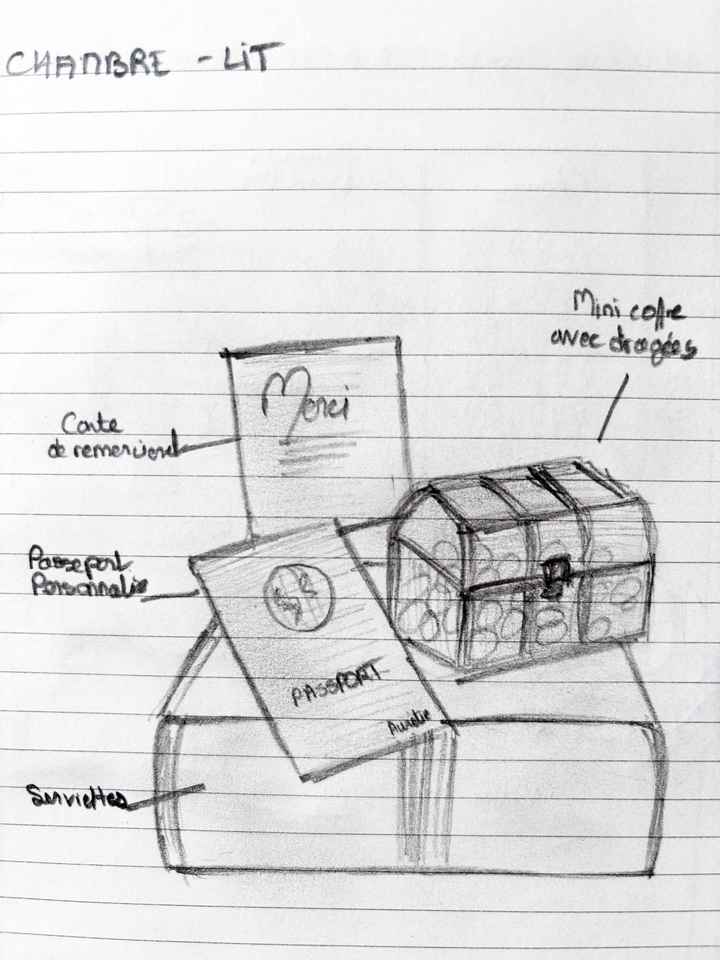 CHAMBRE - LIT
Mini coffre
avec dragées
Merci
Carte
de remerciement
Passeport
Personnalisé
PASSPORT
Aurélie
Serviettes